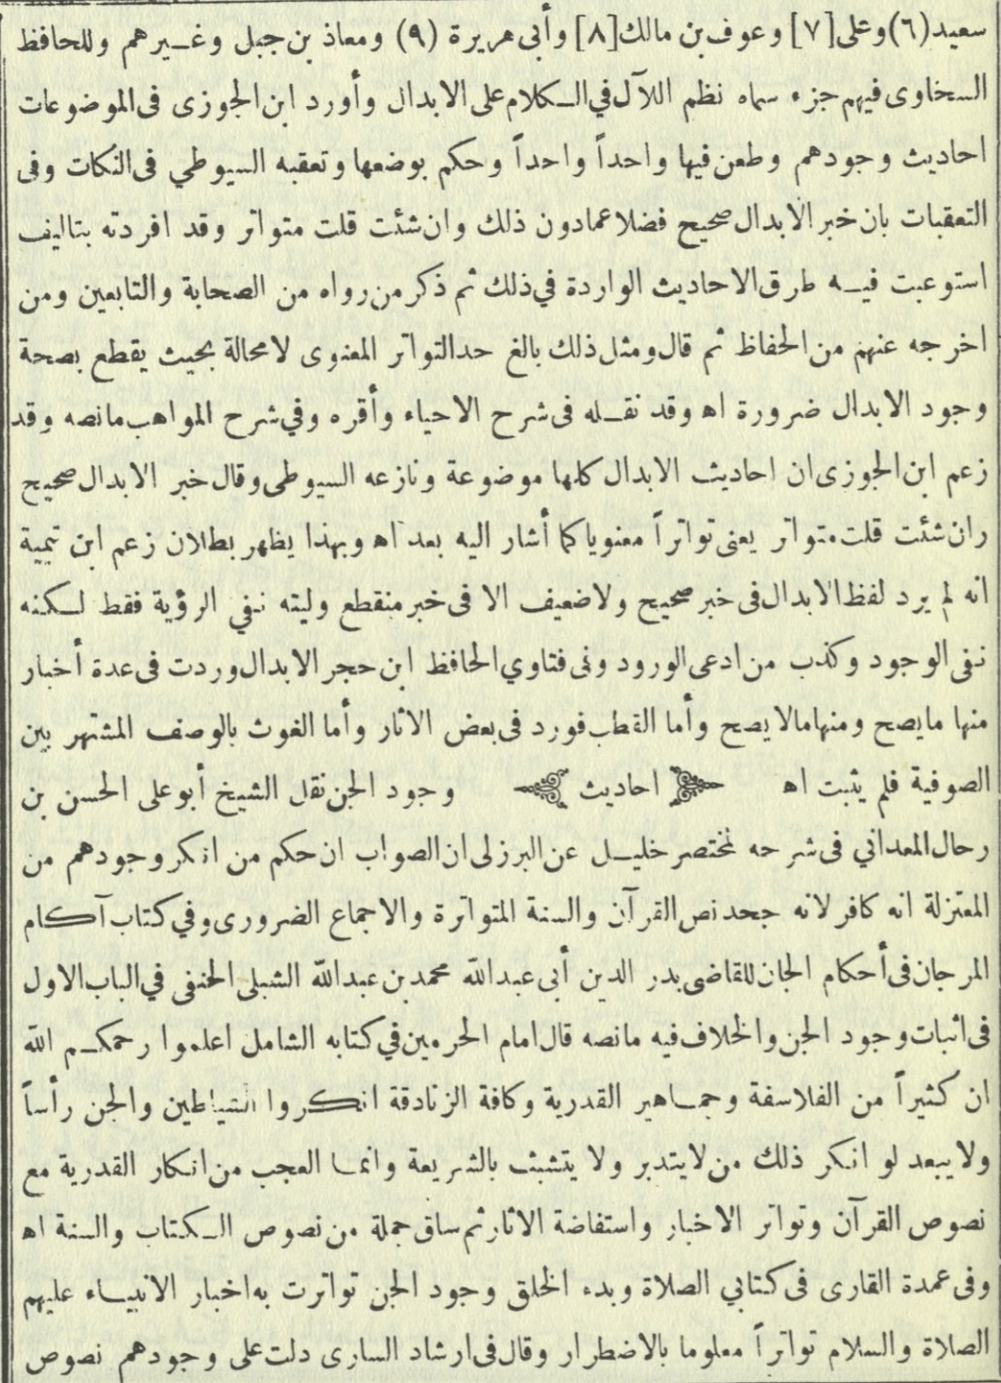 سعيد(٦)وعلى[٧]وعوف بن مالك[٨]وأبى هريرة (٩) ومعاذ بن جبل وغيرهم وللحافظ
السخاوى فيهم جزء سماه نظم اللآل في الكلام على الابدال وأورد ابن الجوزى فى الموضوعات
احاديث وجودهم وطعن فيها واحداً واحداً وحكم بوضعها وتعقبه السيوطي فى النكات وفى
التعقبات بان خبر الابدال صحيح فضلا عمادون ذلك وان شئت قلت متواتر وقد افردته بتاليف
استوعبت فيه طرق الاحاديث الواردة في ذلك ثم ذكر من رواه من الصحابة والتابعين ومن
اخرجه عنهم من الحفاظ ثم قال ومثل ذلك بالغ حد التواتر المعنوى لا محالة بحيث يقطع بصحة
وجود الابدال ضرورة اه وقد نقله فى شرح الاحياء وأقره وفي شرح المواهب مانصه وقد
زعم ابن الجوزى ان احاديث الابدال كلها موضوعة ونازعه السيوطى وقال خبر الابدال صحيح
وان شئت قلت متواتر يعنى تواتراً معنويا كما أشار اليه بعد اه وبهذا يظهر بطلان زعم ابن تيمية
انه لم يرد لفظ الابدال فى خبر صحيح ولا ضعيف الا فى خبر منقطع وليته نفي الرؤية فقط لكنه
نفى الوجود وكذب من ادعى الورود وفى فتاوي الحافظ ابن حجر الابدال وردت فى عدة أخبار
منها مايصح ومنها مالا يصح وأما القطب فورد فى بعض الاثار وأما الغوث بالوصف المشتهر بين
الصوفية فلم يثبت اه احاديث وجود الجن نقل الشيخ أبو على الحسن بن
رحال المعداني فى شرحه لمختصر خليل عن البرزلى ان الصواب ان حكم من انكر وجودهم من
المعتزلة انه كافر لانه جحد نص القرآن والسنة المتواترة والاجماع الضرورى وفي كتاب آكام
المرجان فى أحكام الجان للقاضى بدر الدين أبى عبد الله محمد بن عبد الله الشبلى الحنفى في الباب الاول
فى اثبات وجود الجن والخلاف فيه مانصه قال امام الحرمين في كتابه الشامل اعلموا رحمكم الله
ان كثيراً من الفلاسفة وجماهير القدرية وكافة الزنادقة انكروا الشياطين والجن رأساً
ولا يبعد لو انكر ذلك من لا يتدبر ولا يتشبث بالشريعة وانما العجب من انكار القدرية مع
نصوص القرآن وتواتر الاخبار واستفاضة الاثار ثم ساق جملة من نصوص الكتاب والسنة اه
وفى عمدة القارى فى كتابي الصلاة وبدء الخلق وجود الجن تواترت به اخبار الانبياء عليهم
الصلاة والسلام تواتراً معلوما بالاضطرار وقال فى ارشاد السارى دلت على وجودهم نصوص